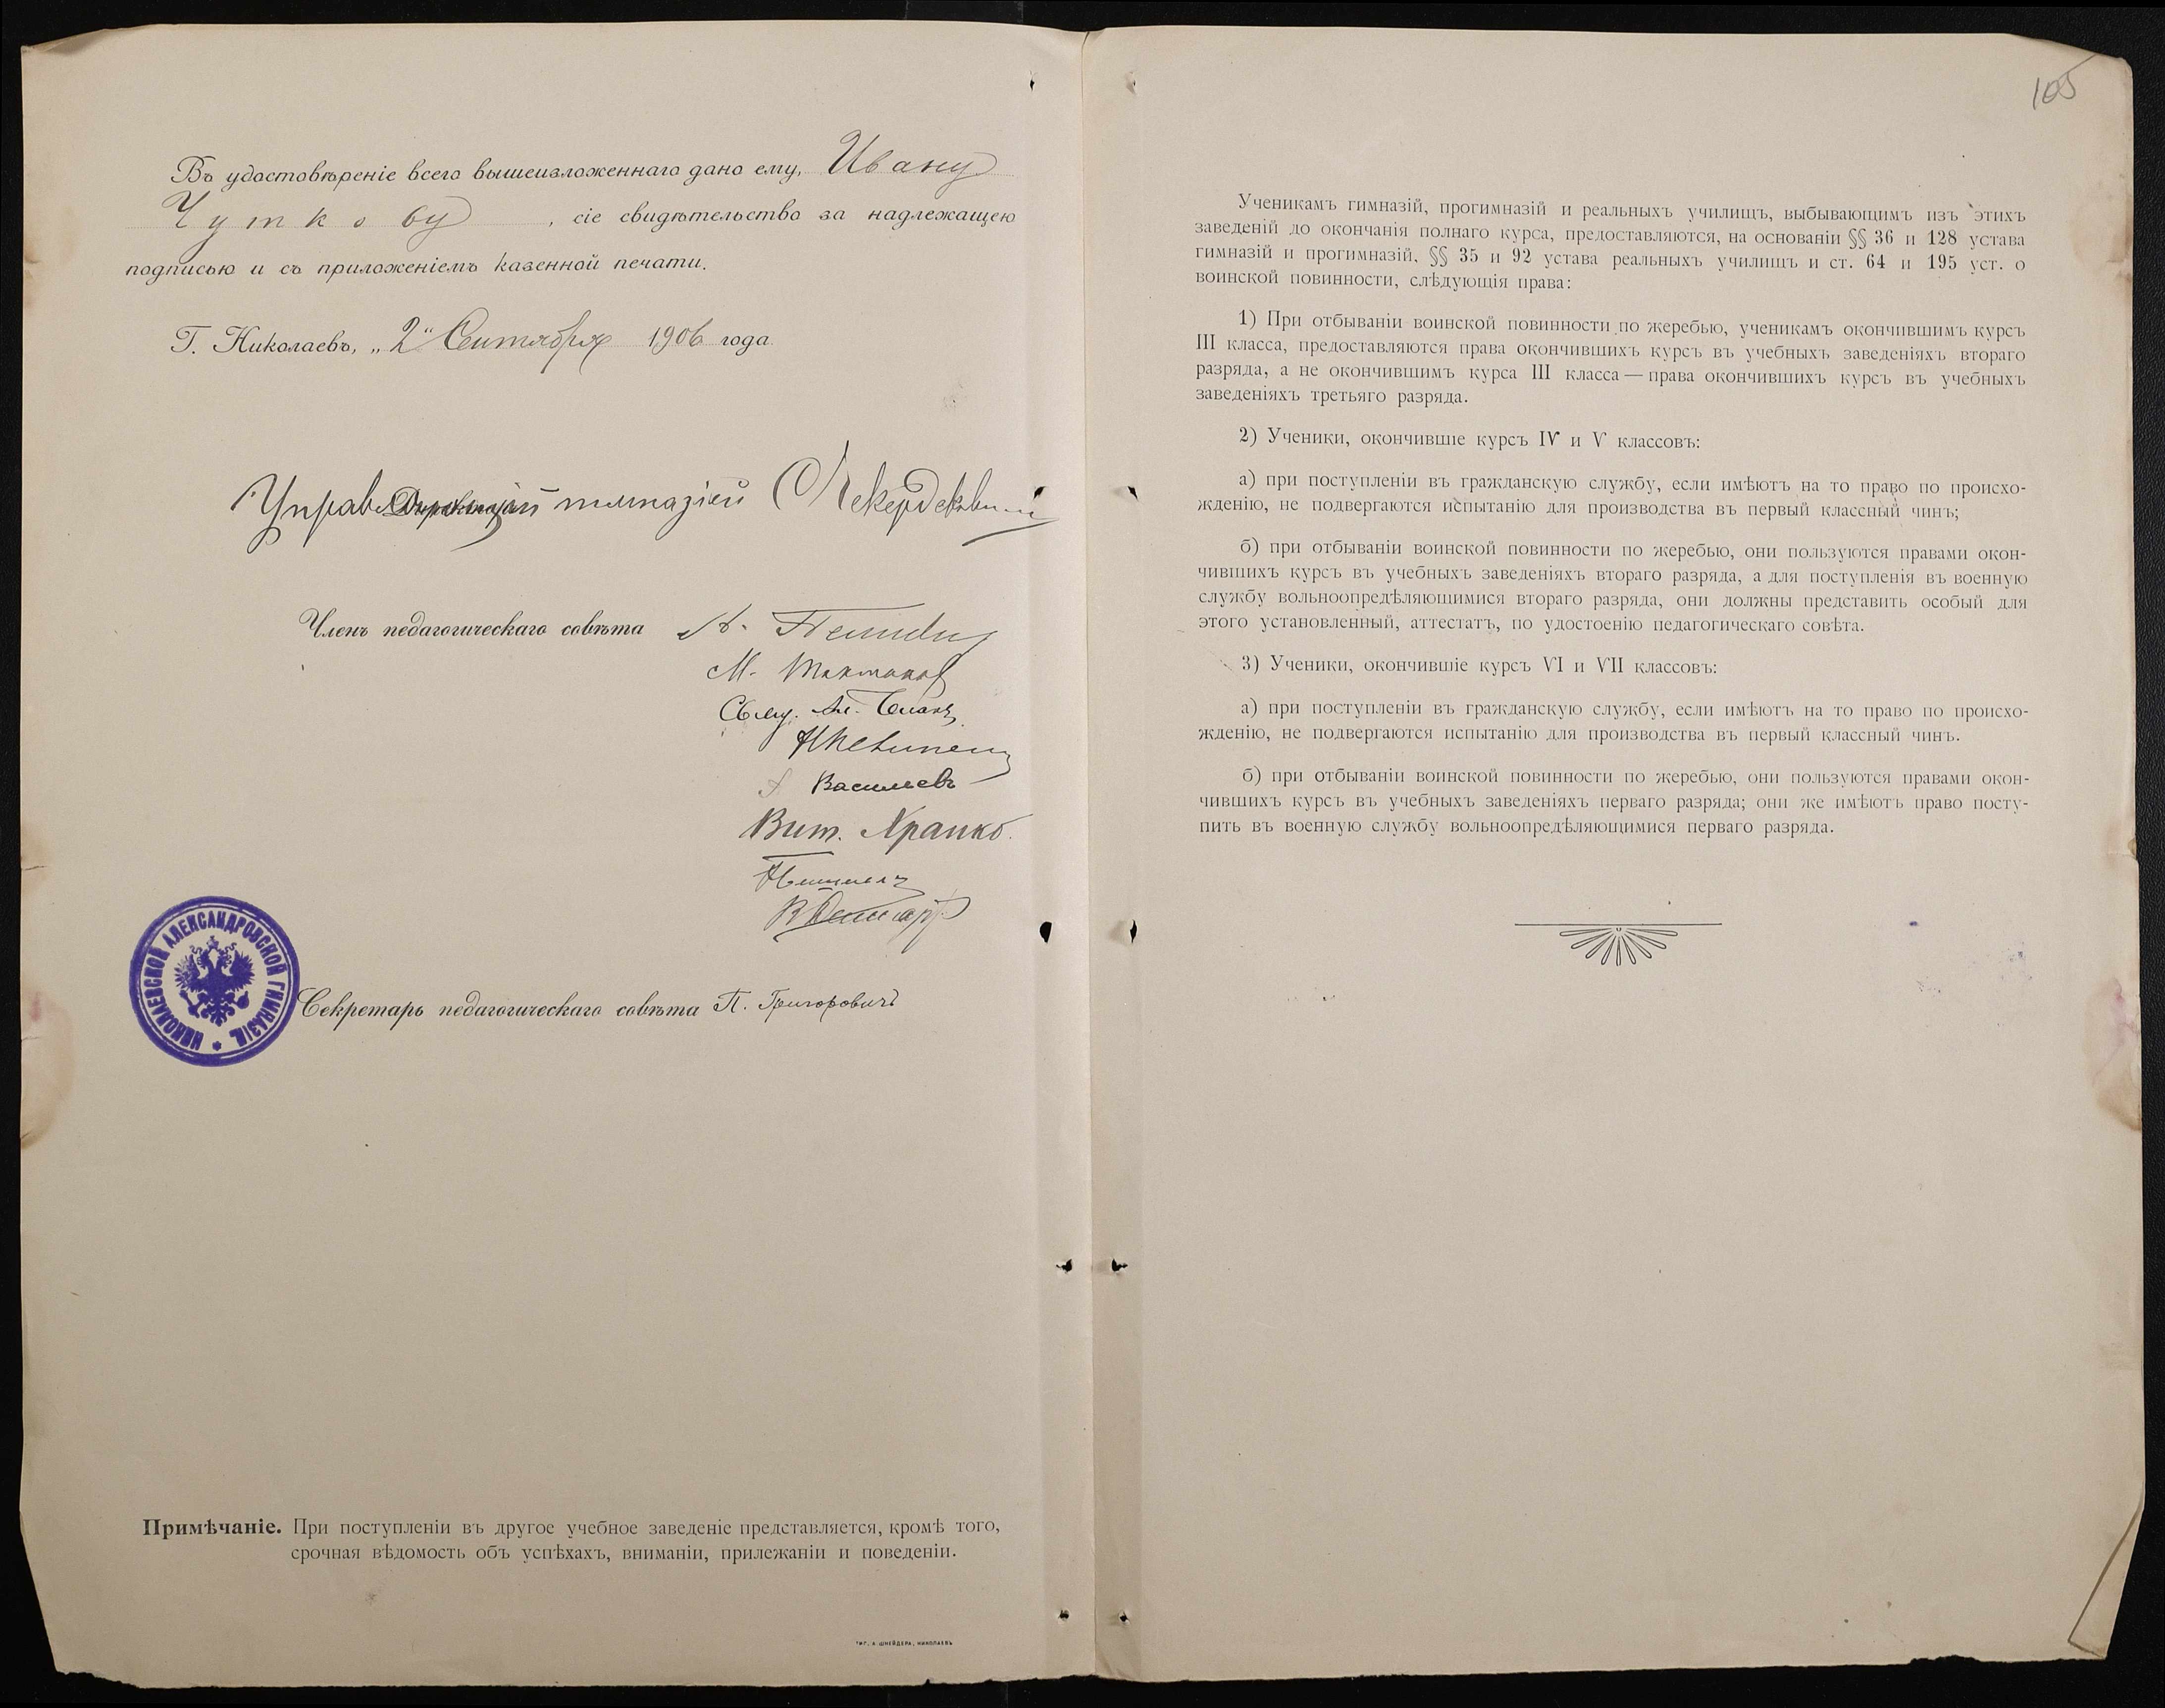 Въ удостовѣреніе всего вышеизложеннаго дано ему, Ивану
Чуткову, сіе свидѣтельство за надлежащею
подписью и съ приложеніемъ казенной печати.
Г. Николаевъ, „2" Сентября 1906 года.
Управляющій гимназіей
Членъ педагогическаго совѣта А.
М.
Свящ. Ал.
Васильевъ
Вит. Храпко.
Секретарь педагогическаго совѣта П. Григоровичъ
НИКОЛАЕВСКОЙ АЛЕКСАНДРОВСКОЙ ГИМНАЗІИ
Примѣчаніе. При поступленіи въ другое учебное заведеніе представляется, кромѣ того,
срочная вѣдомость объ успѣхахъ, вниманіи, прилежаніи и поведеніи.
ТИП. А. ШНЕЙДЕРА, НИКОЛАЕВЪ
105
Ученикамъ гимназій, прогимназій и реальныхъ училищъ, выбывающимъ изъ этихъ
заведеній до окончанія полнаго курса, предоставляются, на основаніи §§ 36 и 128 устава
гимназій и прогимназій, §§ 35 и 92 устава реальныхъ училищъ и ст. 64 и 195 уст. о
воинской повинности, слѣдующія права:
1) При отбываніи воинской повинности по жеребью, ученикамъ окончившимъ курсъ
III класса, предоставляются права окончившихъ курсъ въ учебныхъ заведеніяхъ втораго
разряда, а не окончившимъ курса III класса — права окончившихъ курсъ въ учебныхъ
заведеніяхъ третьяго разряда.
2) Ученики, окончившіе курсъ IV и V классовъ:
а) при поступленіи въ гражданскую службу, если имѣютъ на то право по происхо-
жденію, не подвергаются испытанію для производства въ первый классный чинъ;
б) при отбываніи воинской повинности по жеребью, они пользуются правами окон-
чившихъ курсъ въ учебныхъ заведеніяхъ втораго разряда, а для поступленія въ военную
службу вольноопредѣляющимися втораго разряда, они должны представить особый для
этого установленный, аттестатъ, по удостоенію педагогическаго совѣта.
3) Ученики, окончившіе курсъ VI и VII классовъ:
а) при поступленіи въ гражданскую службу, если имѣютъ на то право по происхо-
жденію, не подвергаются испытанію для производства въ первый классный чинъ.
б) при отбываніи воинской повинности по жеребью, они пользуются правами окон-
чившихъ курсъ въ учебныхъ заведеніяхъ перваго разряда; они же имѣютъ право посту-
пить въ военную службу вольноопредѣляющимися перваго разряда.